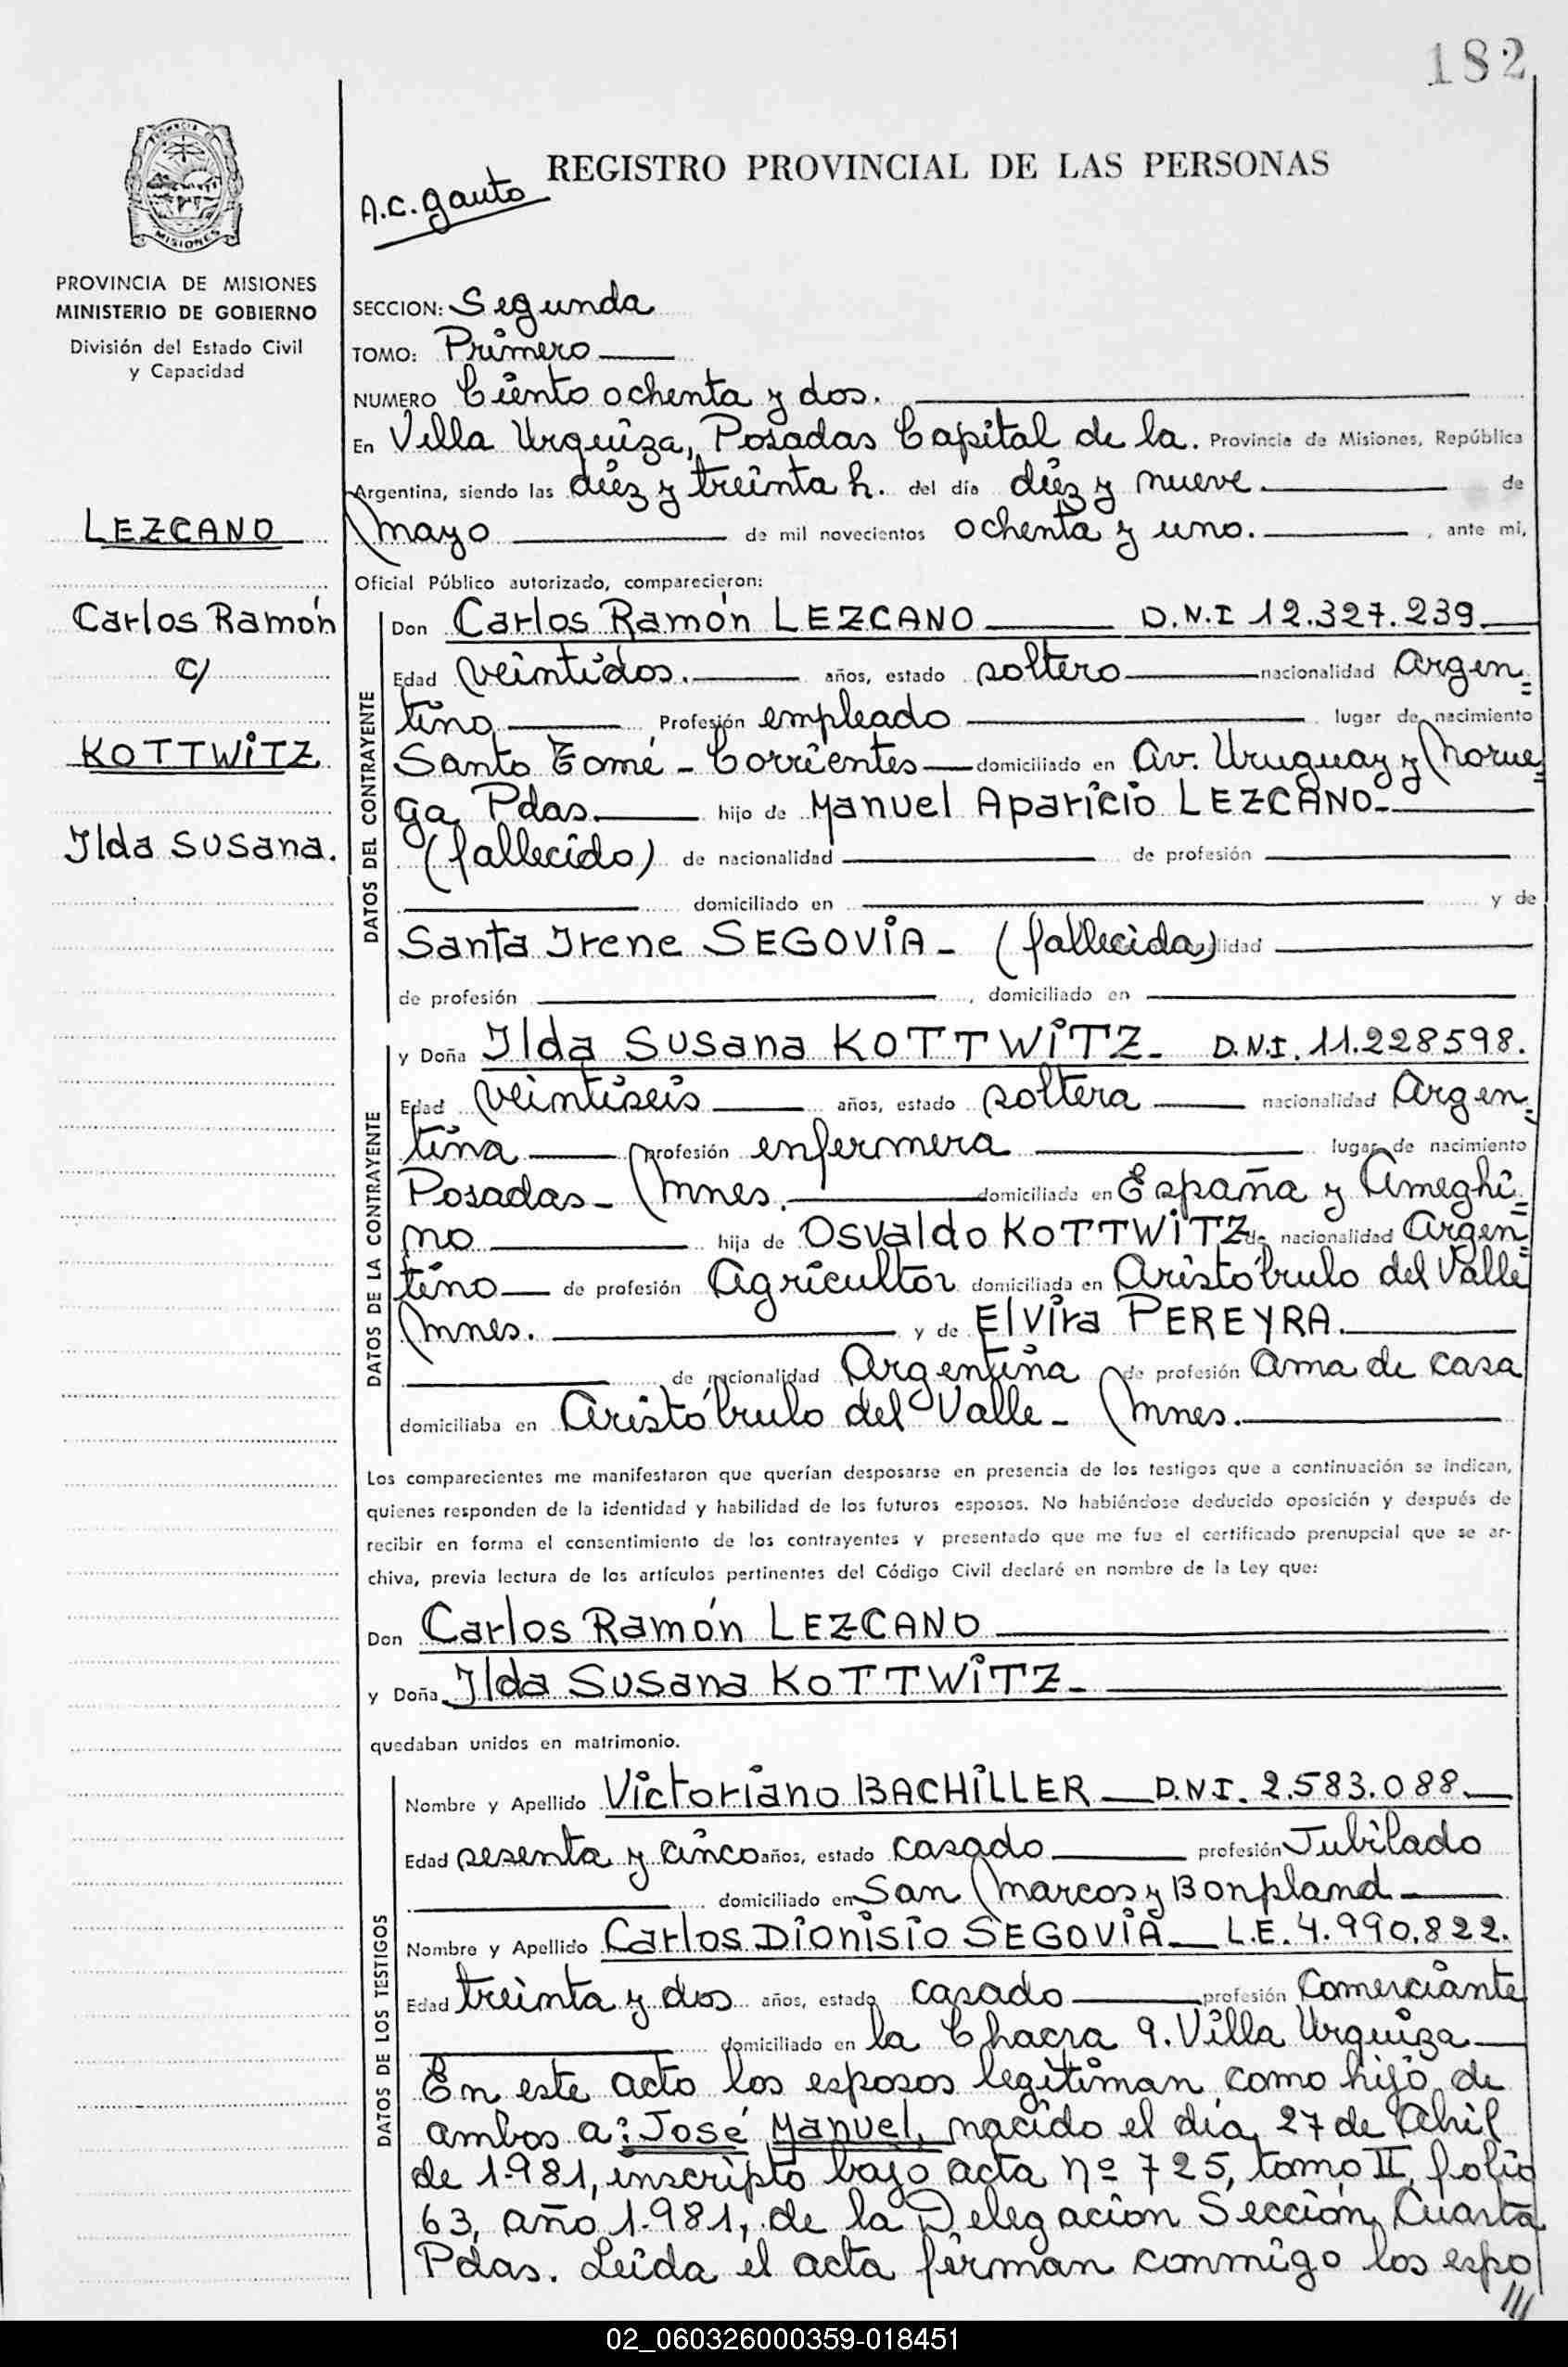 182
PROVINCIA DE
MISIONES
REGISTRO PROVINCIAL DE LAS PERSONAS
A.C. Gauto
PROVINCIA DE MISIONES
MINISTERIO DE GOBIERNO
División del Estado Civil
y Capacidad
LEZCANO
Carlos Ramón
c/
KOTTWITZ
Ilda Susana.
SECCION: Segunda
TOMO: Primero
NUMERO Ciento ochenta y dos.
En Villa Urquiza, Posadas Capital de la. Provincia de Misiones, República
Argentina, siendo las diez y treinta h. del día diez y nueve. de
mayo de mil novecientos ochenta y uno. , ante mi,
Oficial Público autorizado, comparecieron:
DATOS DEL CONTRAYENTE
Don Carlos Ramón LEZCANO D.N.I 12.327.239.
Edad veintidos. años, estado soltero nacionalidad Argen=
tino Profesión empleado lugar de nacimiento
Santo Tomé - Corrientes domiciliado en Av. Uruguay y Norue=
ga Pdas. hijo de Manuel Aparicio LEZCANO-
(fallecido) de nacionalidad de profesión
domiciliado en y de
Santa Irene SEGOVIA - (fallecida) lidad
de profesión , domiciliado en
DATOS DE LA CONTRAYENTE
y Doña Ilda Susana KOTTWITZ- D.N.I. 11.228598.
Edad veintiseis años, estado soltera nacionalidad Argen=
tina profesión enfermera lugar de nacimiento
Posadas - Mnes. domiciliada en España y Ameghi=
no hija de Osvaldo KOTTWITZ de nacionalidad Argen=
tino de profesión Agricultor domiciliada en Aristóbulo del Valle
Mnes. y de Elvira PEREYRA.
de nacionalidad Argentina de profesión Ama de casa
domiciliaba en Aristóbulo del Valle - Mnes.
Los comparecientes me manifestaron que querían desposarse en presencia de los testigos que a continuación se indican,
quienes responden de la identidad y habilidad de los futuros esposos. No habiéndose deducido oposición y después de
recibir en forma el consentimiento de los contrayentes y presentado que me fue el certificado prenupcial que se ar-
chiva, previa lectura de los artículos pertinentes del Código Civil declaré en nombre de la Ley que:
Don Carlos Ramón LEZCANO
y Doña Ilda Susana KOTTWITZ-
quedaban unidos en matrimonio.
DATOS DE LOS TESTIGOS
Nombre y Apellido Victoriano BACHILLER D.N.I. 2.583.088.
Edad sesenta y cinco años, estado casado profesión Jubilado
domiciliado en San Marcos y Bonpland
Nombre y Apellido Carlos Dionisio SEGOVIA L.E. 4.990.822.
Edad treinta y dos años, estado casado profesión Comerciante
domiciliado en la Chacra 9. Villa Urquiza
En este acto los esposos legitiman como hijo de
ambos a: José Manuel, nacido el día 27 de Abril
de 1.981, inscripto bajo acta nº 725, tomo II, folio
63, año 1.981, de la Delegación Sección Cuarta
Pdas. Leida el acta firman conmigo los espo
///
02_060326000359-018451